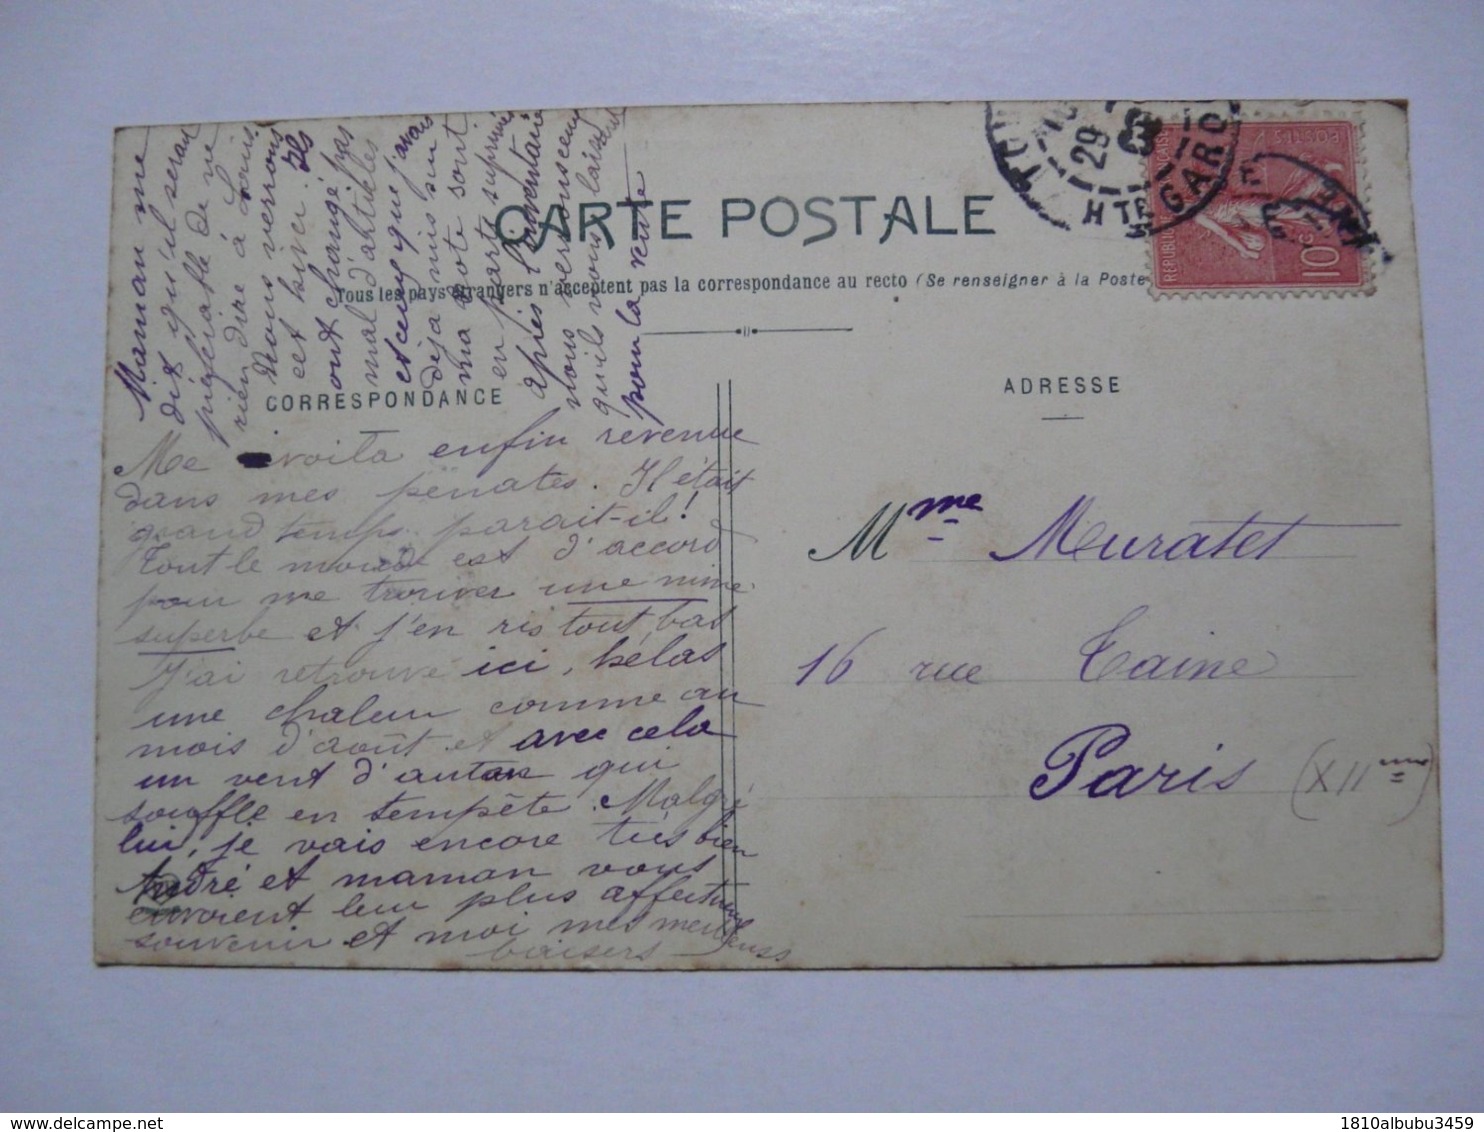 CARTE POSTALE
Tous les pays étrangers n'acceptent pas la correspondance au recto (Se renseigner à la Poste
CORRESPONDANCE
ADRESSE
Maman me
dit qu'il serait
préférable de ne
rien dire à Louis
Nous verrons
cet hiver. Ils
ont changé pas
mal d'articles
et ceux que j'avais
déjà mis sur
ma note sont
en partie supprimés
après l'inventaire
nous verrons ceux
qu'ils nous laissent
pour la vente
Me voilà enfin revenue
dans mes pénates. Il était
grand temps parait-il!
Tout le monde est d'accord
pour me trouver une mine
superbe et j'en ris tout bas
J'ai retrouvé ici, hélas
une chaleur comme au
mois d'août et avec cela
un vent d'autan qui
souffle en tempête. Malgré
lui, je vais encore très bien
André et maman vous
envoient leur plus affectueux
souvenir et moi mes meilleurs
baisers
Mme Muratet
16 rue Taine
Paris (XIIme)
29
HTE GARO
10c
1810albubu3459
delcampe.net